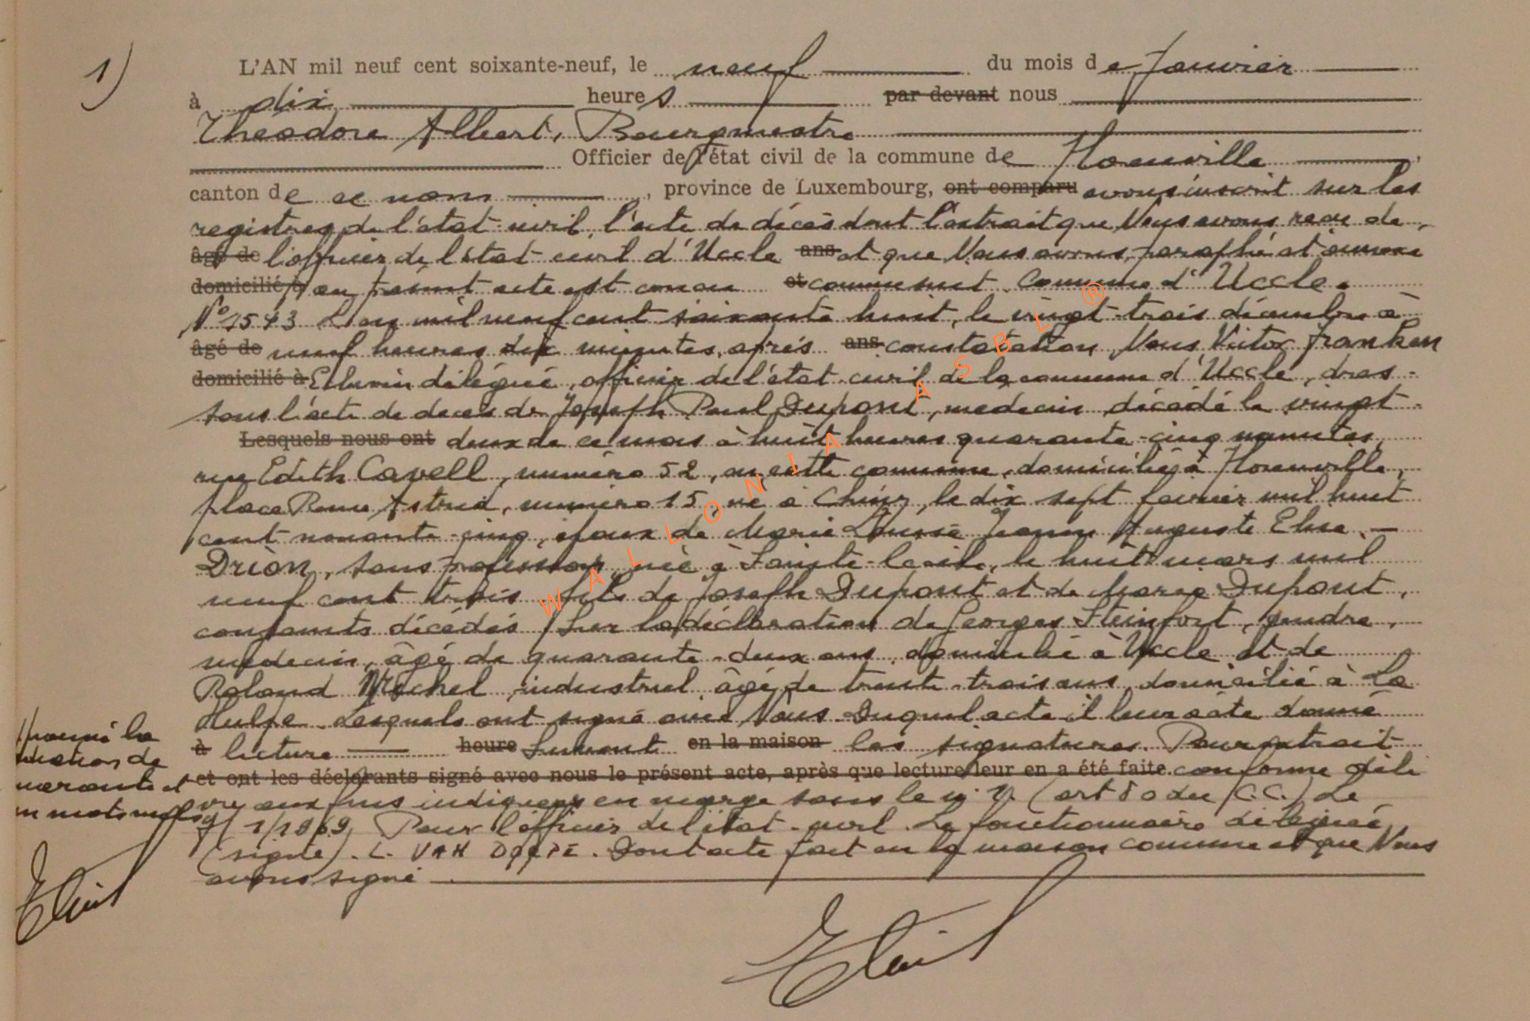 1)
L'AN mil neuf cent soixante-neuf, le neuf du mois de Janvier
à dix heures par devant nous
Théodore Albert, Bourgmestre
Officier de l'état civil de la commune de Florenville,
canton de ce nom, province de Luxembourg, ont comparu avons inscrit sur les
registres de l'état-civil, l'acte de décès dont l'extrait que Nous avons reçu de
âgé de l'officier de l'état-civil d'Uccle ans et que Nous avons paraphé et annexé
domicilié à au présent acte est conçu et comme suit. Commune d'Uccle.
N° 1573 L'an mil neuf cent soixante huit, le vingt-trois décembre à
âgé de neuf heures dix minutes, après ans constatation, Nous Victor Franken
domicilié à Echevin délégué, officier de l'état-civil de la commune d'Uccle, dres-
sons l'acte de décès de Joseph Paul Dupont, médecin, décédé le vingt-
Lesquels nous ont deux de ce mois à huit heures quarante-cinq minutes,
rue Edith Cavell, numéro 52, en cette commune, domicilié à Florenville,
place Reine Astrid, numéro 15, né à Chiny, le dix sept février mil huit
cent nonante-cinq, époux de Marie Louise Jenny Auguste Elise
Drion, sans profession, née à Sainte-Cécile, le huit mars mil
neuf cent trois, fils de Joseph Dupont et de Marie Dupont,
conjoints décédés. Sur la déclaration de Georges Steinfort, gendre,
médecin, âgé de quarante-deux ans, domicilié à Uccle et de
Roland Michel, industriel, âgé de trente-trois ans, domicilié à La
Hulpe. Lesquels ont signé avec Nous. Duquel acte il leur a été donné
à lecture heure Suivent en la maison les signatures. Pour extrait
et ont les déclarants signé avec nous le présent acte, après que lecture leur en a été faite. conforme déli
vré aux fins indiquées en marge sous le n° (art 80 du C.C.) Le
9/1/1969. Pour l'officier de l'état-civil. Le fonctionnaire délégué
(signé). L. VAN Dont acte fait en la maison commune et que Nous
avons signé
WALLONIA ASBL ®